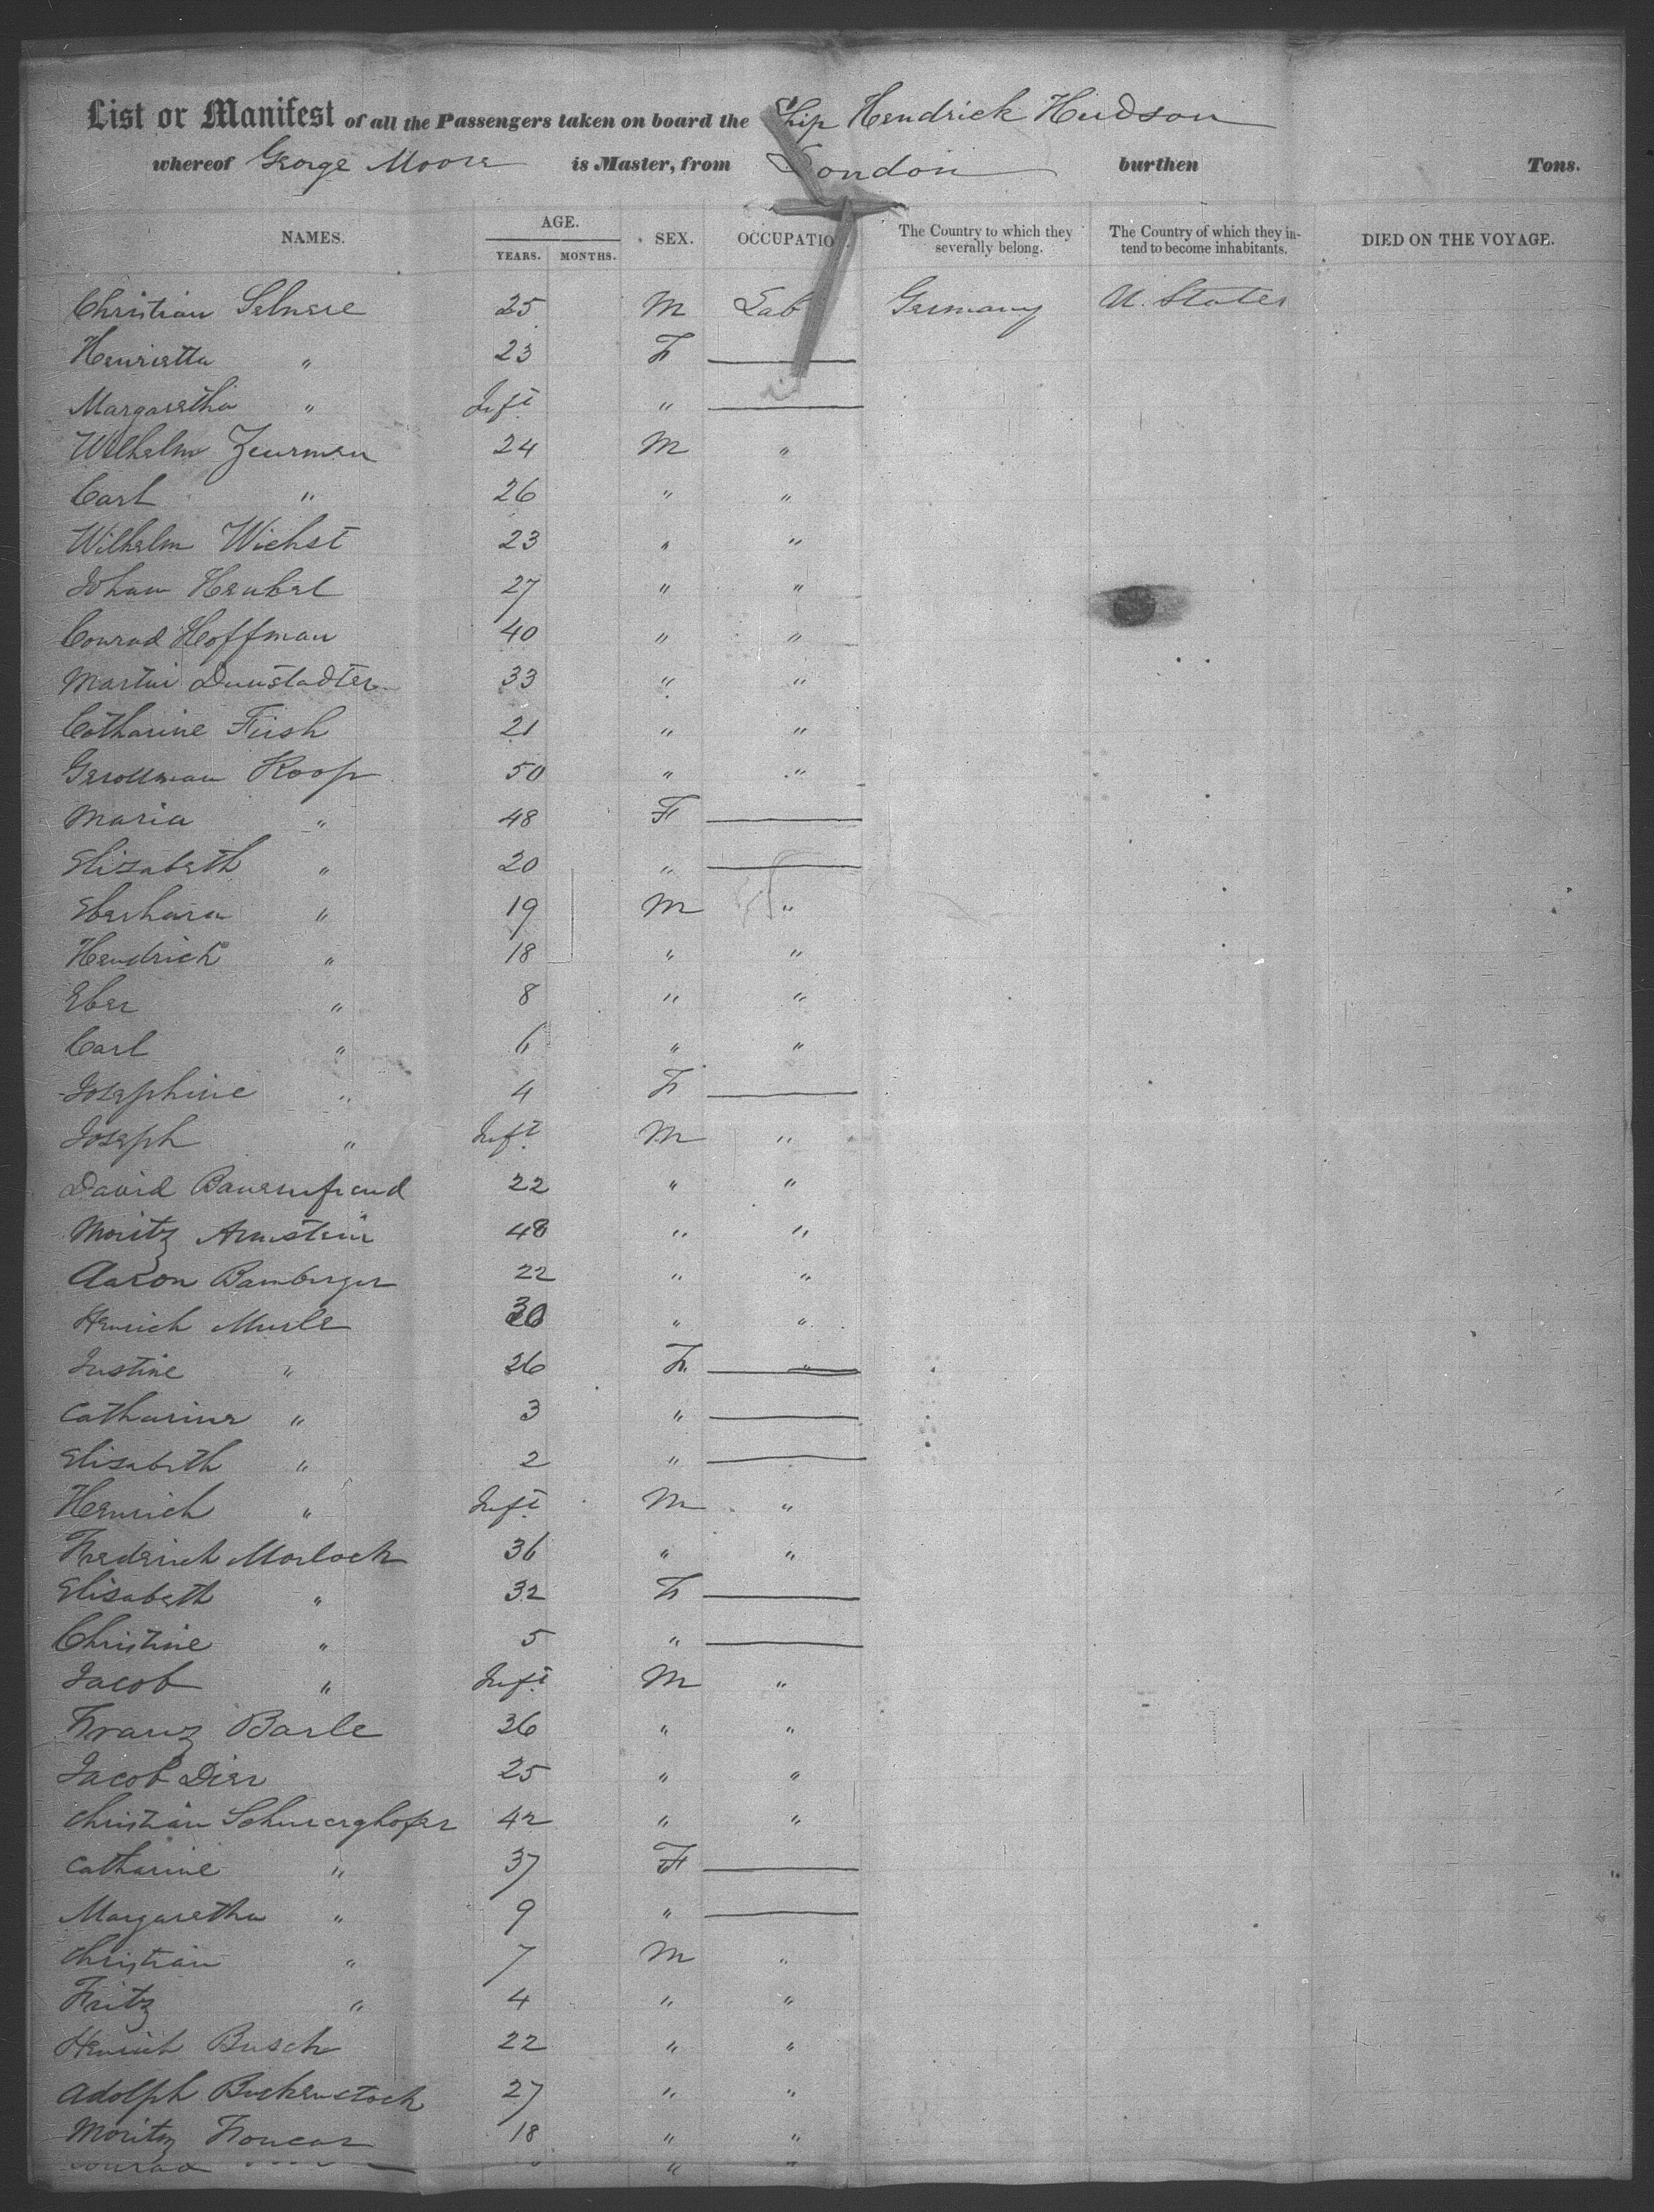 List or Manifest of all the Passengers taken on board the Ship Hendrick Hudson
whereof George Moore is Master, from London burthen Tons.
NAMES. AGE. YEARS. MONTHS. SEX. OCCUPATION. The Country to which they severally belong. The Country of which they intend to become inhabitants. DIED ON THE VOYAGE.
Christian 25 M Lab Germany U. States
Henrietta " 23 F
Margaretha " Inft "
Wilhelm 24 M "
Carl " 26 " "
Wilhelm Wiehst 23 " "
Johann Heubel 27 " "
Conrad Hoffman 40 " "
Martin 33 " "
Catharine Fiish 21 " "
Koop 50 " "
Maria " 48 F
Elizabeth " 20 "
" 19 M "
Hendrick " 18 " "
Eber " 8 " "
Carl " 6 " "
Josephine " 4 F
Joseph " Inft M "
David 22 " "
Moritz Arnstein 48 " "
Aaron Bamberger 22 " "
Heinrich 30 " "
Justine " 26 F "
Catharine " 3 "
Elisabeth " 2 "
Heinrich " Inft M "
Frederick Morlock 36 " "
Elisabeth " 32 F
Christine " 5 "
Jacob " Inft M "
Franz Barle 36 " "
Jacob Dier 25 " "
Christian 42 " "
Catharine " 37 F
Margaretha " 9 "
Christian " 7 M "
Fritz " 4 " "
Heinrich Busch 22 " "
Adolph 27 " "
Moritz 18 " "
Conrad " "